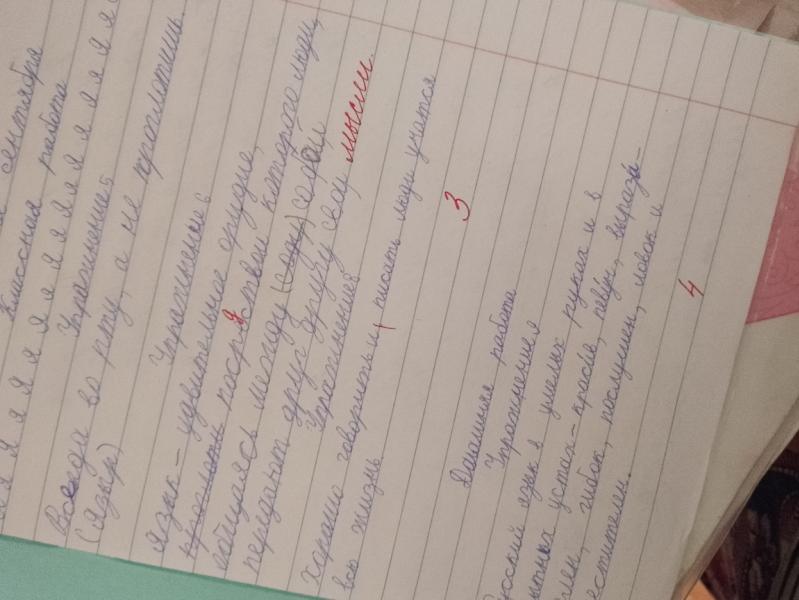 сентября
Классная работа
я я я я я я я я я я я я я
Упражнение 5
Всегда во рту, а не проглотишь.
(язык)
Упражнение 6
Язык – удивительное орудие,
посредством которого люди,
общаясь между (сому) собой,
передают друг другу свои мысли.
Упражнения
Хорошо говорить и писать люди учится
всю жизнь.
3
Домашняя работа
Упражнения
усский язык в умелых руках и в
опытных устах – красив, певуч, вырази-
лен, гибок, послушен, ловок и
естителен.
4